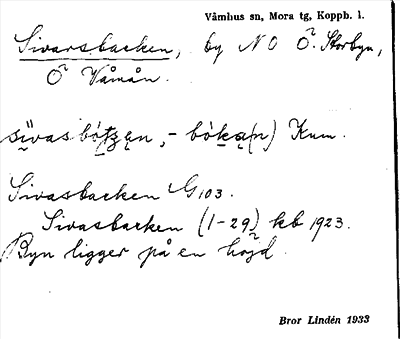 Våmhus sn, Mora tg, Koppb. l.
Sivarsbacken, by NO Ö. Storbyn,
Ö Våmån.
sivas , - Kum.
Sivasbacken G103.
Sivasbacken (1-29) kb 1923.
Byn ligger på en höjd.
Bror Lindén 1933